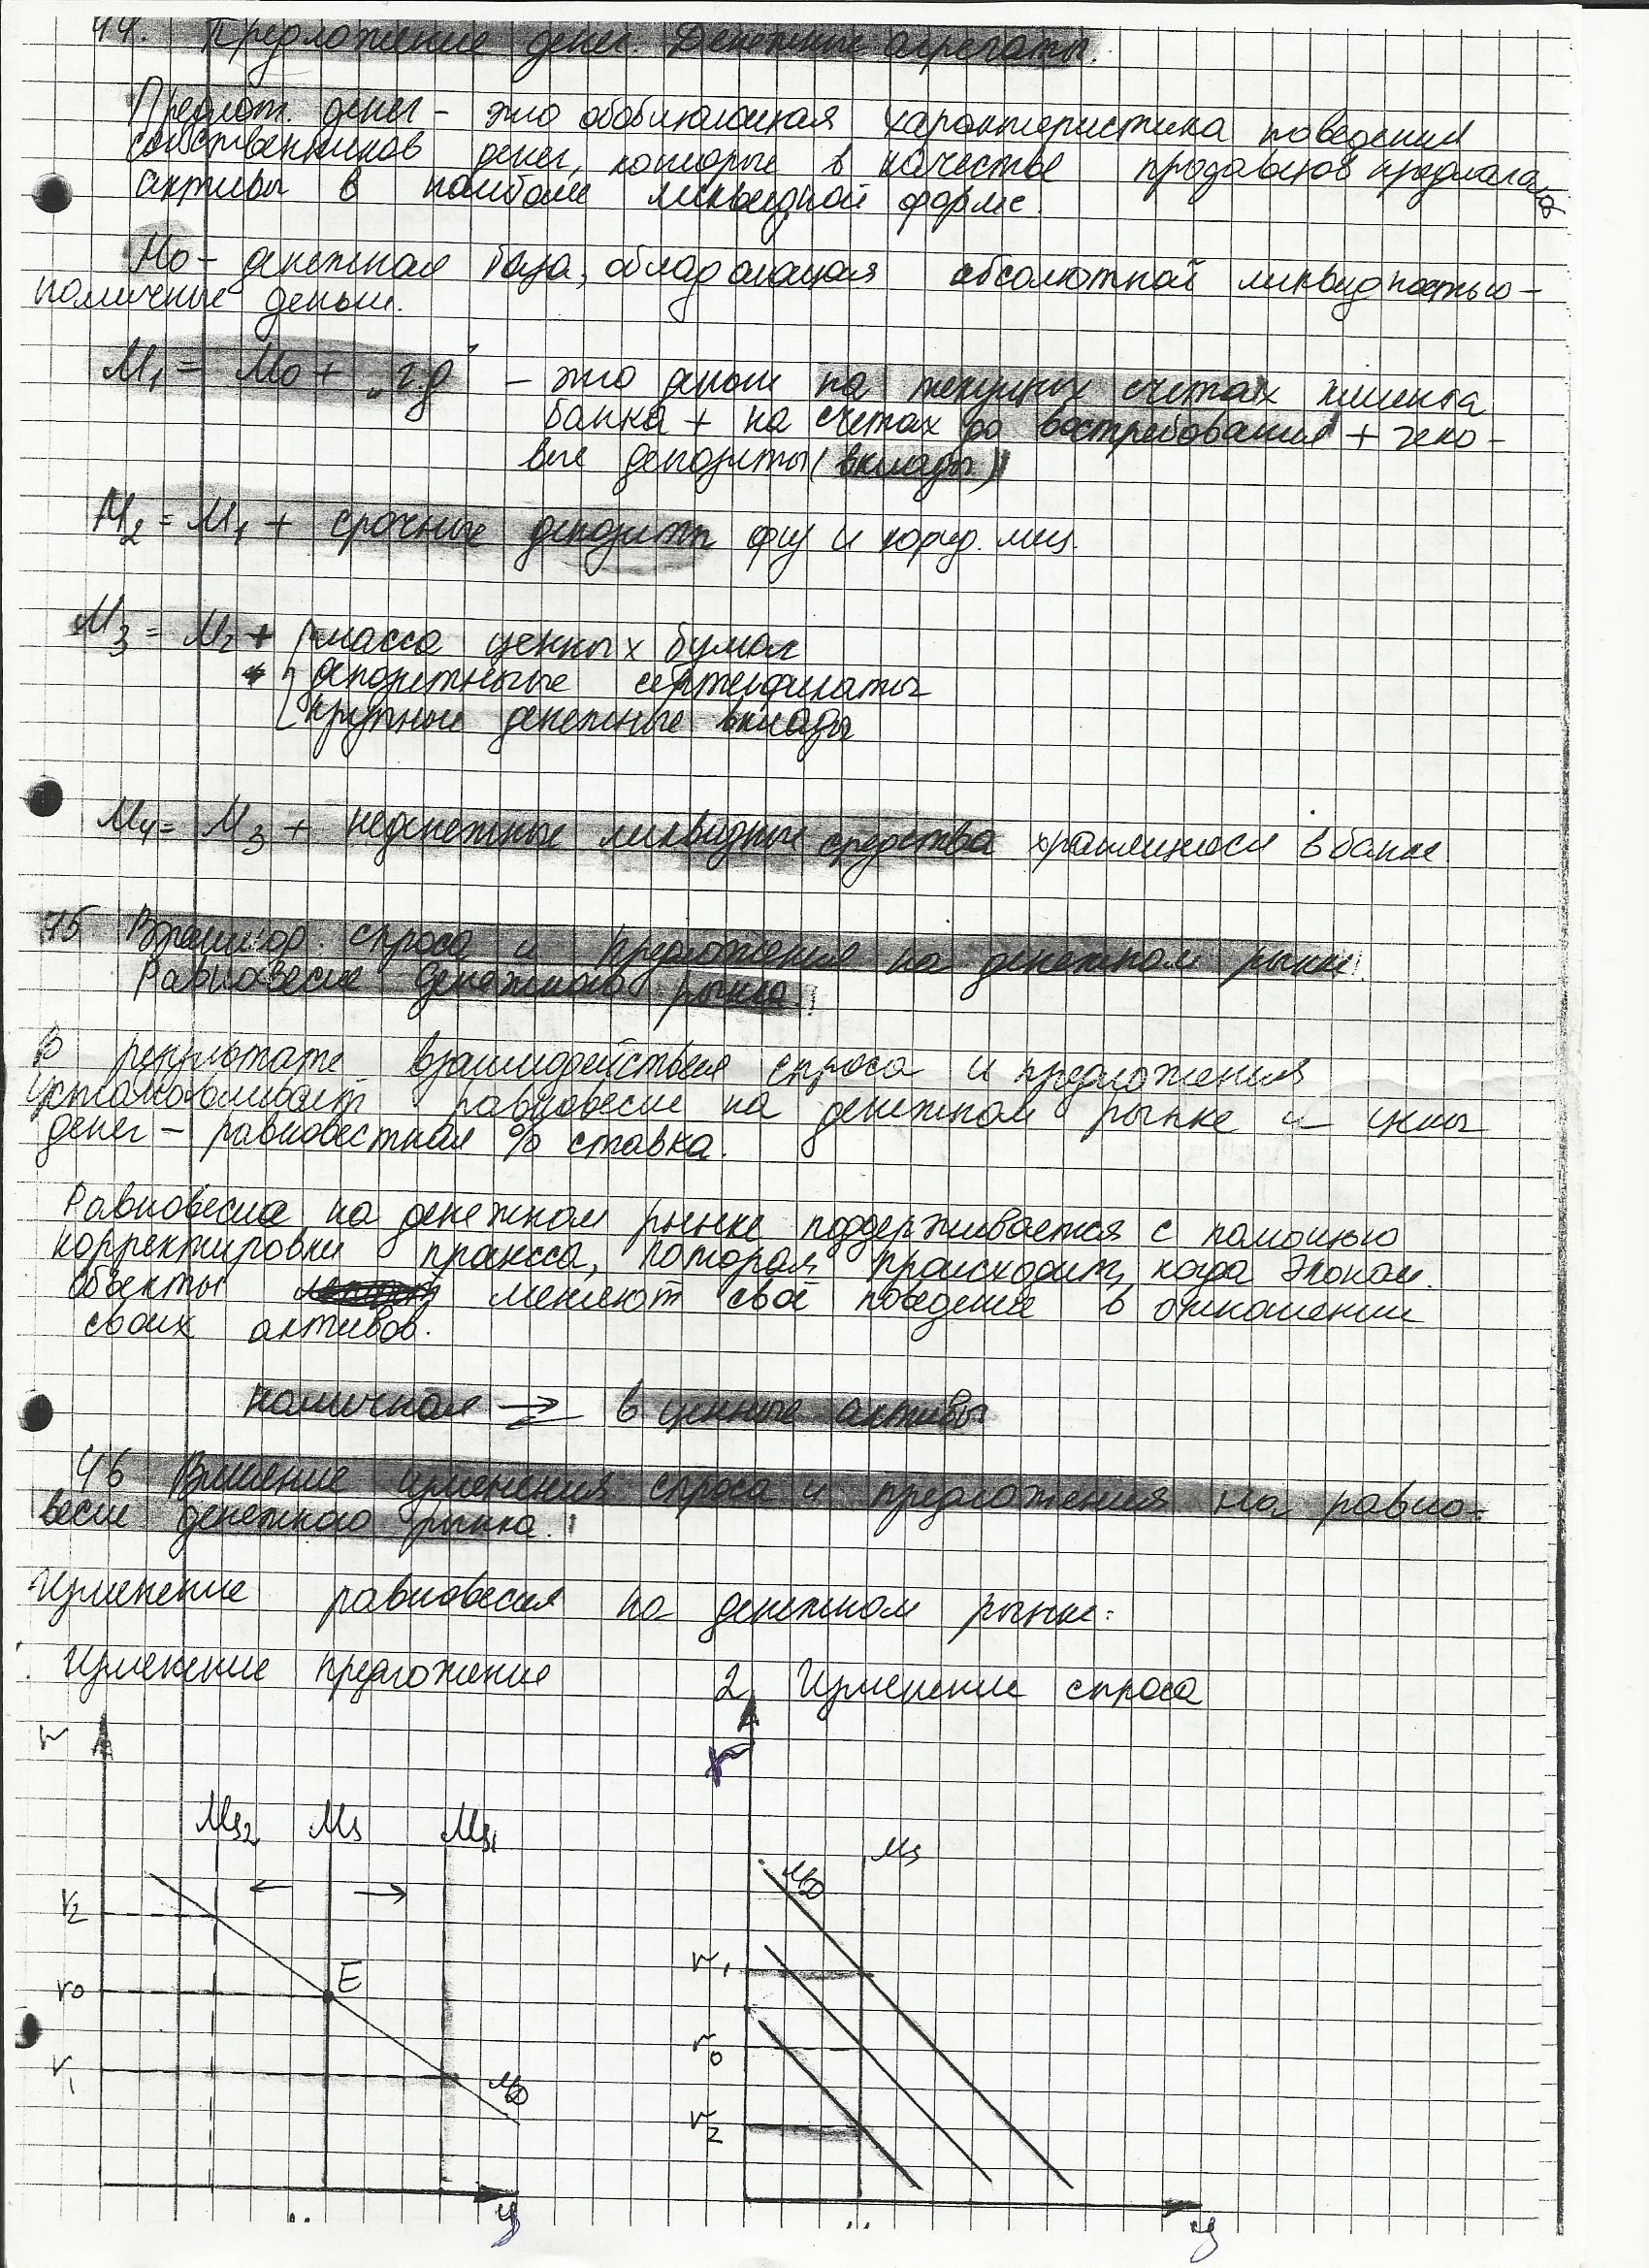 44. Предложение денег. Денежные агрегаты.
Предлож. денег - это обобщающая характеристика поведения
собственников денег, которые в качестве продавцов предлагают
активы в наиболее ликвидной форме.
M0 - денежная база, обладающая абсолютной ликвидностью -
наличные деньги.
M1 = M0 + "г.д" - это деньги на текущих счетах клиента
банка + на счетах до востребования + чеко-
вые депозиты (вклады)
M2 = M1 + срочные депозиты физ и юрид. лиц.
M3 = M2 + масса ценных бумаг
депозитные сертификаты
крупные денежные вклады
M4 = M3 + неденежные ликвидные средства хранящиеся в банке
45 Взаимод. спроса и предложения на денежном рынке.
Равновесие денежного рынка.
В результате взаимодействия спроса и предложения
устанавливает равновесие на денежном рынке и цены
денег - равновестная % ставка.
Равновесие на денежном рынке поддерживается с помощью
корректировки процесса, которая происходит, когда Эконом.
объекты меняют своё поведение в отношении
своих активов.
наличная → в ценные активы
46 Влияние изменения спроса и предложения на равно-
весие денежного рынка.
Изменение равновесия на денежном рынке:
Изменение предложение 2 Изменение спроса
r r
Ms2 Ms Ms1 Ms
MD
r2
r0 E r1
r1 MD r0
r2
y y